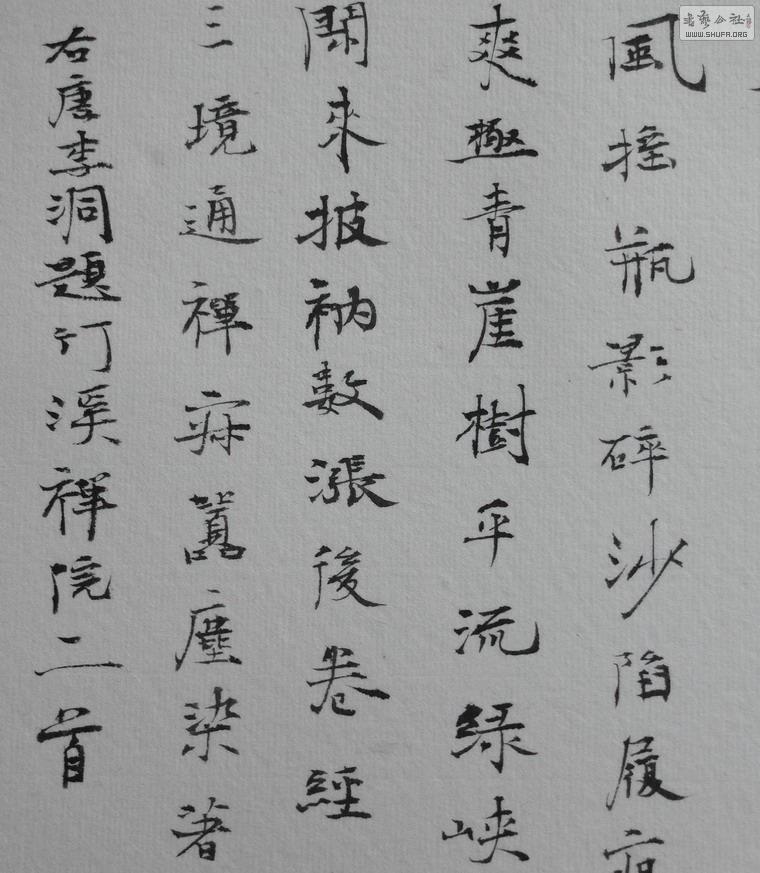 風搖瓶影碎沙陷履
爽極青崖樹平流綠峽
閑來披衲數漲後卷經
三境通禪寂囂塵染著
右唐李洞題竹溪禪院二首
書藝公社
WWW.SHUFA.ORG